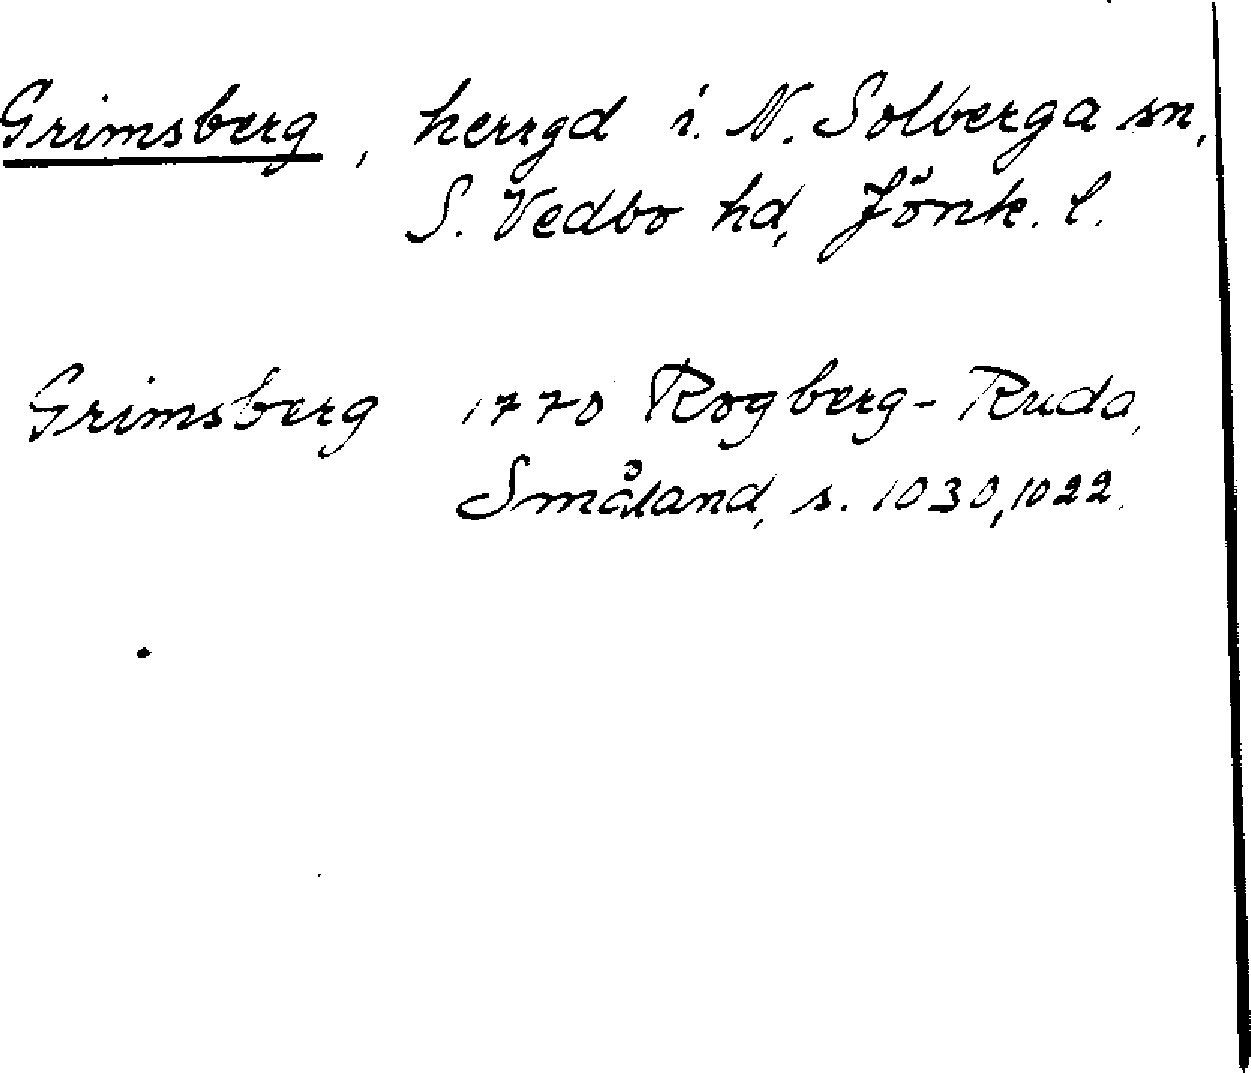 Grimsberg, herrgd i. N. Solberga sn,
S. Vedbo hd, Jönk. l.
Grimsberg 1770 Rogberg-Ruda,
Småland, s. 1030, 1022.